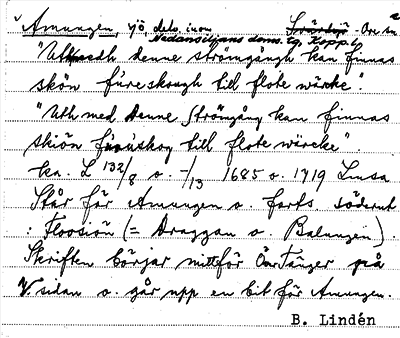 Amungen, sjö dels inom Svärdsjö - Ore sn
Nedansiljans doms. tg, Kopp. l.
"Uthmedh denne strömgångh kan finnas
skön fureskough till flote wärcke".
"Uth med denne strömgång kan finnas
skiön furuskog till flote wärcke".
ka. L 132/8 o. -/13 1685 o. 1719 Linsa
Står för Amungen o. forts söderut
: Floosiön (= Draggan o. Balungen).
Skriften börjar mittför ÖarTänger på
V. sidan o. går upp en bit för Amungen.
B. Lindén